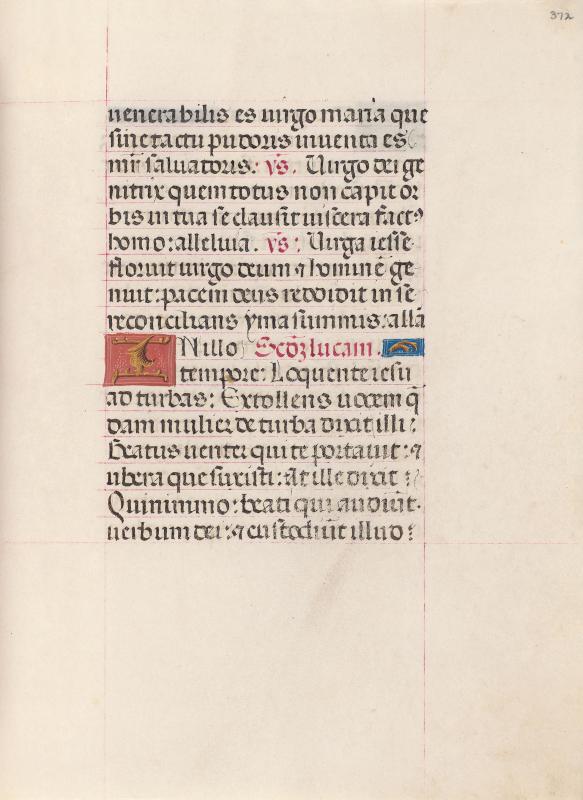 372
venerabilis es uirgo maria que
sine tactu pudoris inuenta es
mr̄ saluatoris. v̄s. Uirgo dei ge
nitrix quem totus non capit or
bis in tua se clausit uiscera factꝰ
homo: alleluia. v̄s: Uirga iesse
floruit uirgo deum ⁊ hominē ge
nuit: pacem deus reddidit in se
reconcilians yma summis: allā
IN illo Scd̄ȝ lucam.
tempore: Loquente iesu
ad turbas: Extollens uocem q̄
dam mulier de turba dixit illi:
Beatus uenter qui te portauit: ⁊
ubera que suxisti: At ille dixit:
Quinimmo: beati qui audiūt
uerbum dei: ⁊ custodiūt illud: